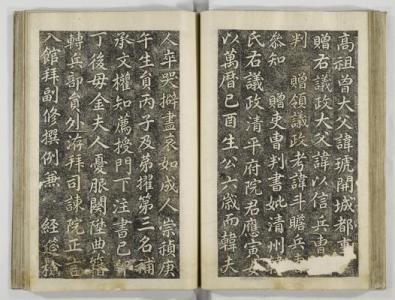 高祖曾大父諱琥開城都事
贈右議政大父諱以信兵曹
判 贈領議政考諱斗瞻兵
叅知 贈吏曹判書妣清州
氏右議政清平府院君應寅女
以萬曆己酉生公六歲而韓夫
人卒哭擗盡哀如成人崇禎庚
午生員丙子及第擢第三名補
承文權知薦授門下注書已
丁後母金夫人憂服闋陞典籍
轉兵郎員外流拜司諫院正言
入館拜副修撰例兼 經筵